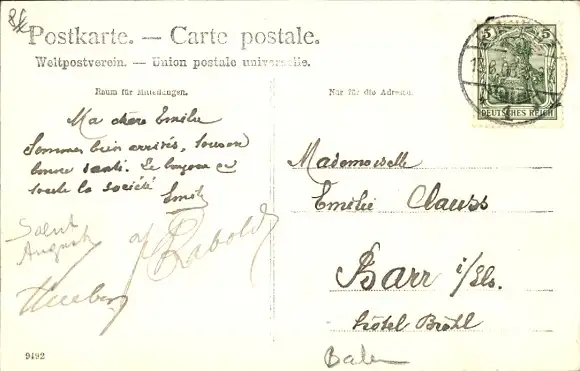 Postkarte. — Carte postale.
Weltpostverein. — Union postale universelle.
Raum für Mitteilungen.
Nur für die Adresse.
5 5
DEUTSCHES REICH
Ma chère Emilie
Sommes bien arrivés, tous en
bonne santé. Le bonjour de
toute la société
Emile
Salut
August
Rabold
Mademoiselle
Emilie Clauss
Barr i/Els.
Hôtel Bröhl
9492